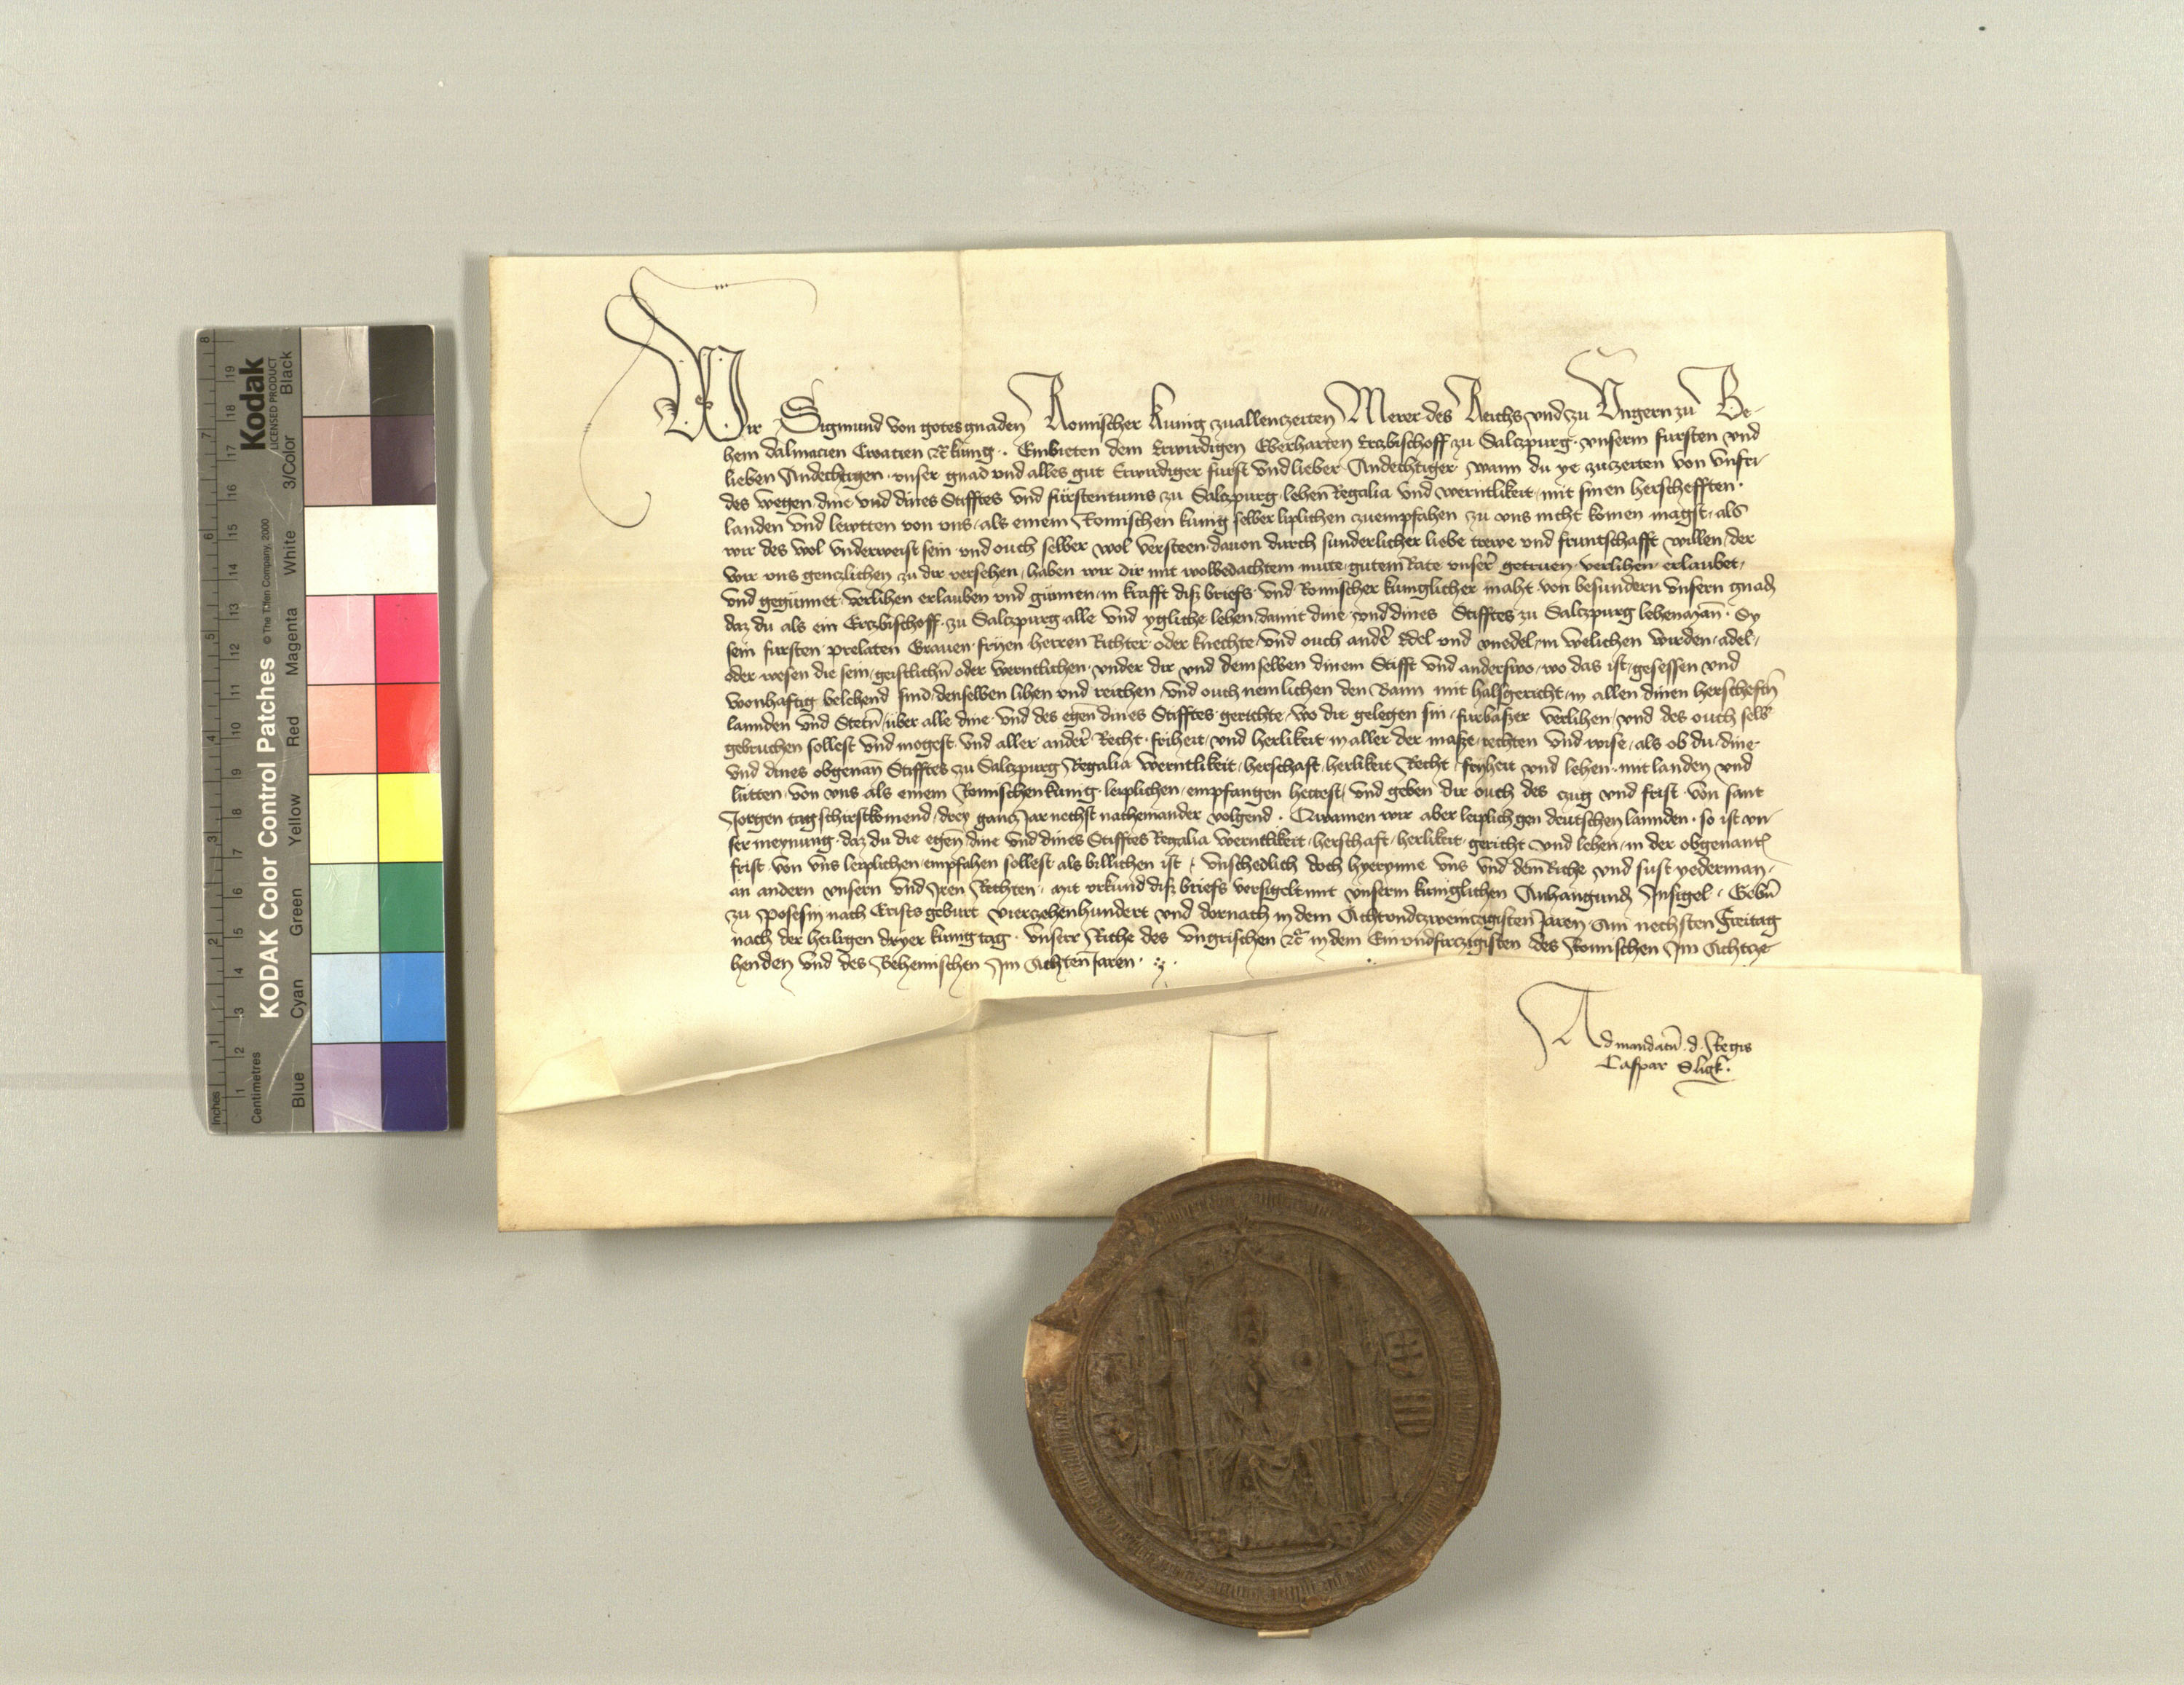 Wir Sigmund von gotes gnaden Romischer Kunig zuallenczeiten Merer des Reichs und zu Ungern zu Be-
hem Dalmacien Croacien etc. kunig. Embieten dem Erwirdigen Eberharten Erczbischoff zu Salczpurg unserm fursten und
lieben Andechtigen unser gnad und alles gut Erwirdiger furst und lieber Andechtiger wann du ye zuzeiten von unfri-
des wegen dine und dines Stifftes und fürstentums zu Salczpurg lehen Regalia und werntlikeit mit sinen herschefften
landen und lewtten von uns als einem Romischen kunig selber liplichen czuempfahen zu uns nicht komen magst als
wir des wol underweist sein und ouch selber wol versteen davon durch sunderlicher liebe trewe und fruntschafft willen der
wir uns genczlichen zu dir versehen haben wir dir mit wolbedachtem mute gutem Rate unser getruen verlihen erlaubet
und gegünnet verlihen erlauben und günnen in krafft disz briefs und Romischer kuniglicher maht von besundern unsern gnad
daz du als ein Erczbischoff zu Salczpurg alle und ygliche lehen damit dine und dines Stifftes zu Salczpurg lehensman Sy
sein fursten prelaten Graven fryen herren Richter oder knechte und ouch ander Edel und unedel in welichen wirden adel
oder wesen die sein geistlichn oder werntlichen under dir und demselben dinem Stifft und anderswo wo das ist gesessen und
wonhaftig belehend sind denselben lihen und reichen und ouch nemlichen den Bann mit halsgericht in allen dinen herscheftn
lannden und Stetn über alle dine und des egen dines Stifftes gerichte wo die gelegen sin furbaszer verlihen und des ouch selb
gebruchen sollest und mogest und aller ander Recht friheit und herlikeit in aller der masze rechten und wise als ob du dine
und dines obgenan Stifftes zu Salczpurg Regalia werntlikeit herschaft herlikeit Recht fryheit und lehen mit landen und
lutten von uns als einem Romischen kunig leiplichen empfangen hettest und geben dir ouch des czug und frist von sant
Jorgen tag schirstkomend drey gancz Jar nechst nacheinander volgend. Qwamen wir aber leiplich gen deutschen lannden so ist un-
ser meynung daz du die egen dine und dines Stifftes Regalia werntlikeit herschaft herlikeit gericht und lehen in der obgenant
frist von uns leiplichen empfahen sollest als billichen ist unschedlich doch hyerynne uns und dem Riche und sust yederman
an andern unsern und Iren Rechten mit urkund disz briefs versigelt mit unserm kuniglichen Anhangund Insigel Gebn
zu Posesin nach Crists geburt vierzehenhundert und dornach in dem Achtundczweinczigisten Jaren Am nechsten Freitag
nach der heiligen dryer kunig tag unserr Riche des Ungrischen etc in dem Einundfirczigisten des Romischen Im Achtze-
henden und des Behemischen Im Achten Jaren.
Ad mandatu d. Regis
Caspar Sligk.
KODAK Color Control Patches
© The Tiffen Company, 2000
Kodak
LICENSED PRODUCT
Blue Cyan Green Yellow Red Magenta White 3/Color Black
Inches 1 2 3 4 5 6 7 8
Centimetres 1 2 3 4 5 6 7 8 9 10 11 12 13 14 15 16 17 18 19